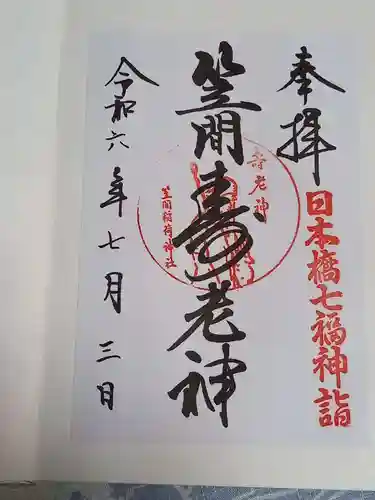 奉拝
日本橋七福神詣
笠間寿老神
寿老神
笠間稲荷神社
令和六年七月三日